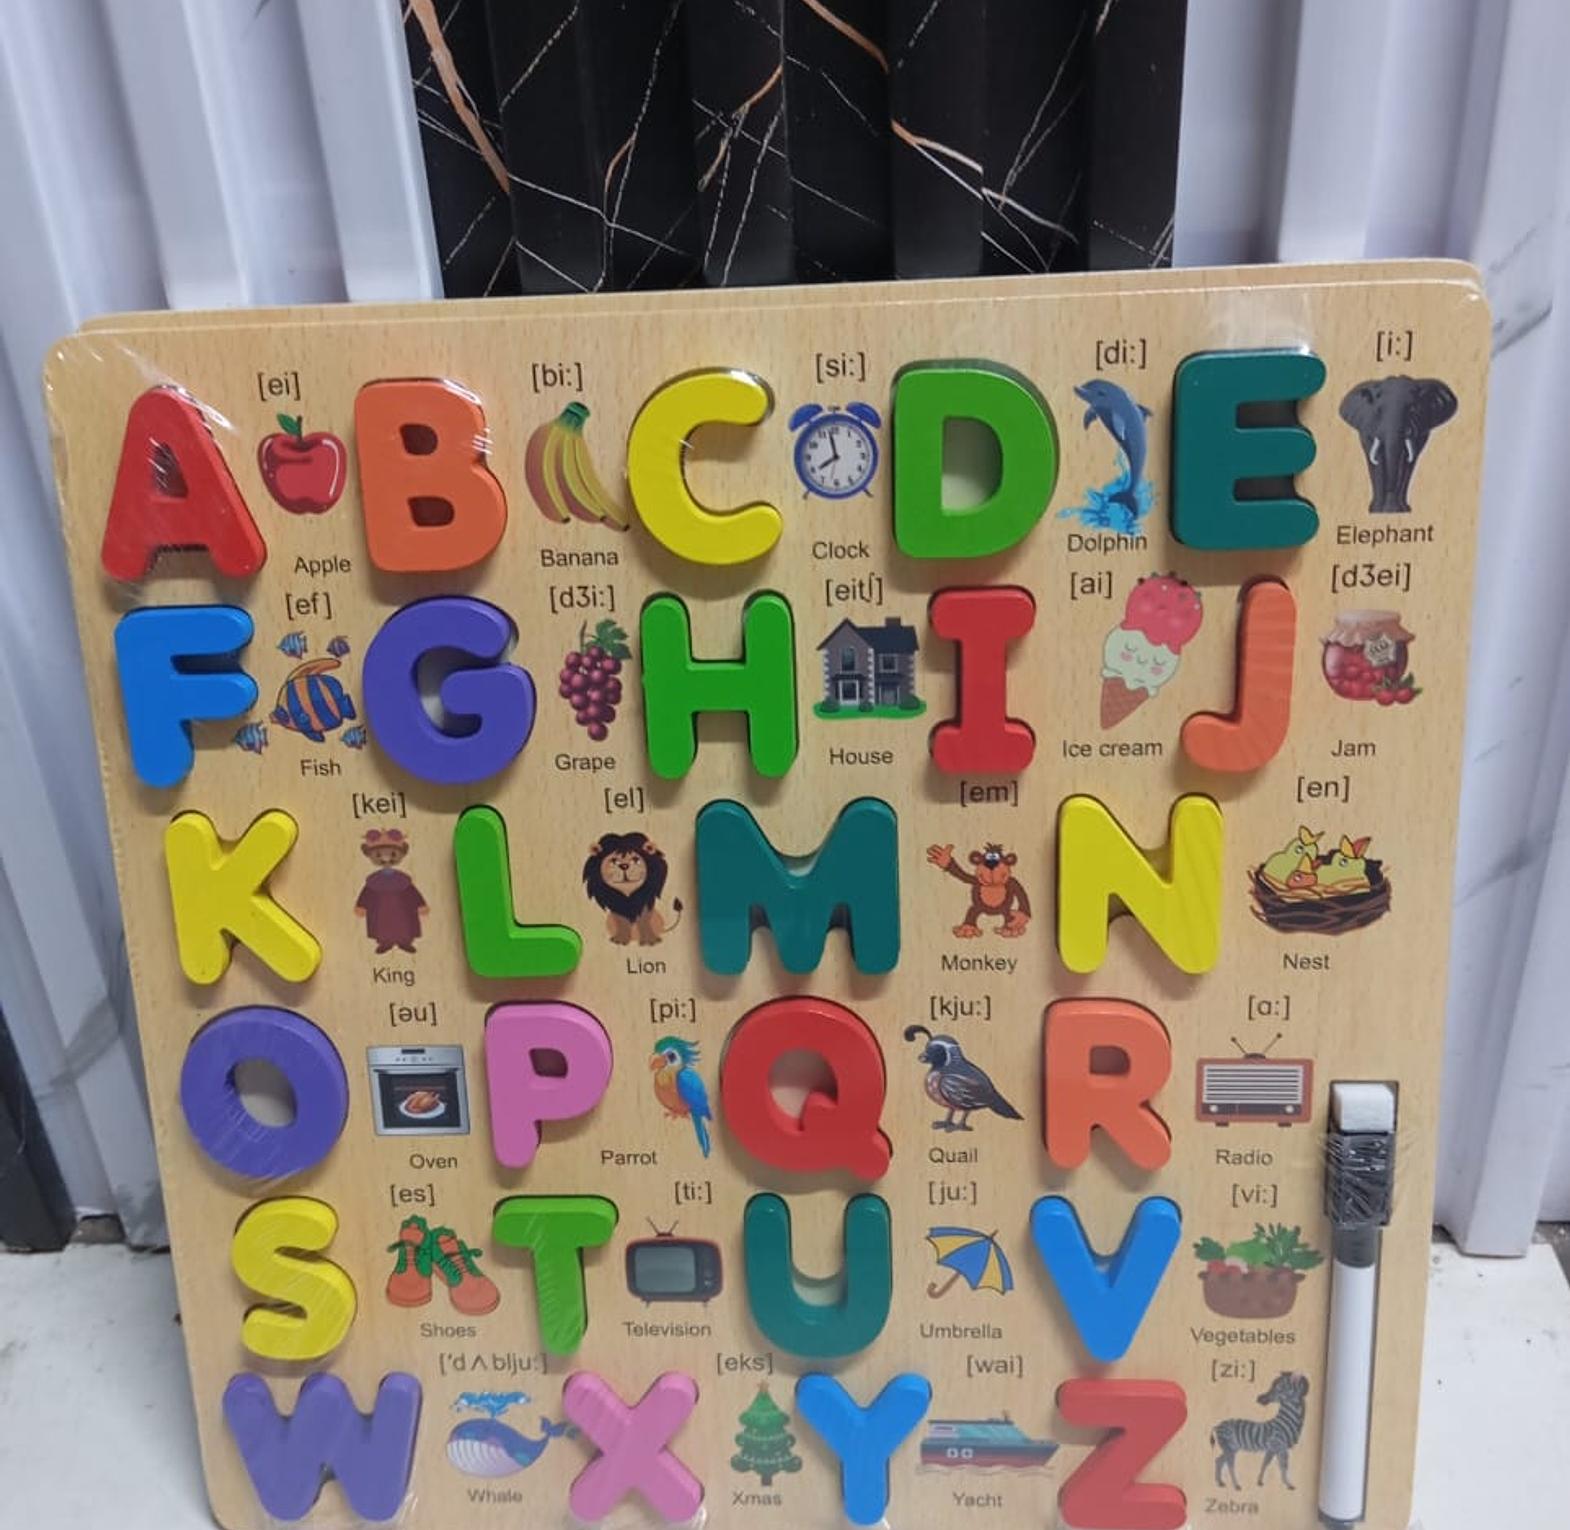 [ei] [bi:] [si:] [di:] [i:]
A B C D E
Apple Banana Clock Dolphin Elephant
[ef] [dʒi:] [eitʃ] [ai] [dʒei]
F G H I J
JAM
Fish Grape House Ice cream Jam
[kei] [el] [em] [en]
K L M N
King Lion Monkey Nest
[əu] [pi:] [kju:] [ɑ:]
O P Q R
Oven Parrot Quail Radio
[es] [ti:] [ju:] [vi:]
S T U V
Shoes Television Umbrella Vegetables
['dʌblju:] [eks] [wai] [zi:]
W X Y Z
Whale Xmas Yacht Zebra